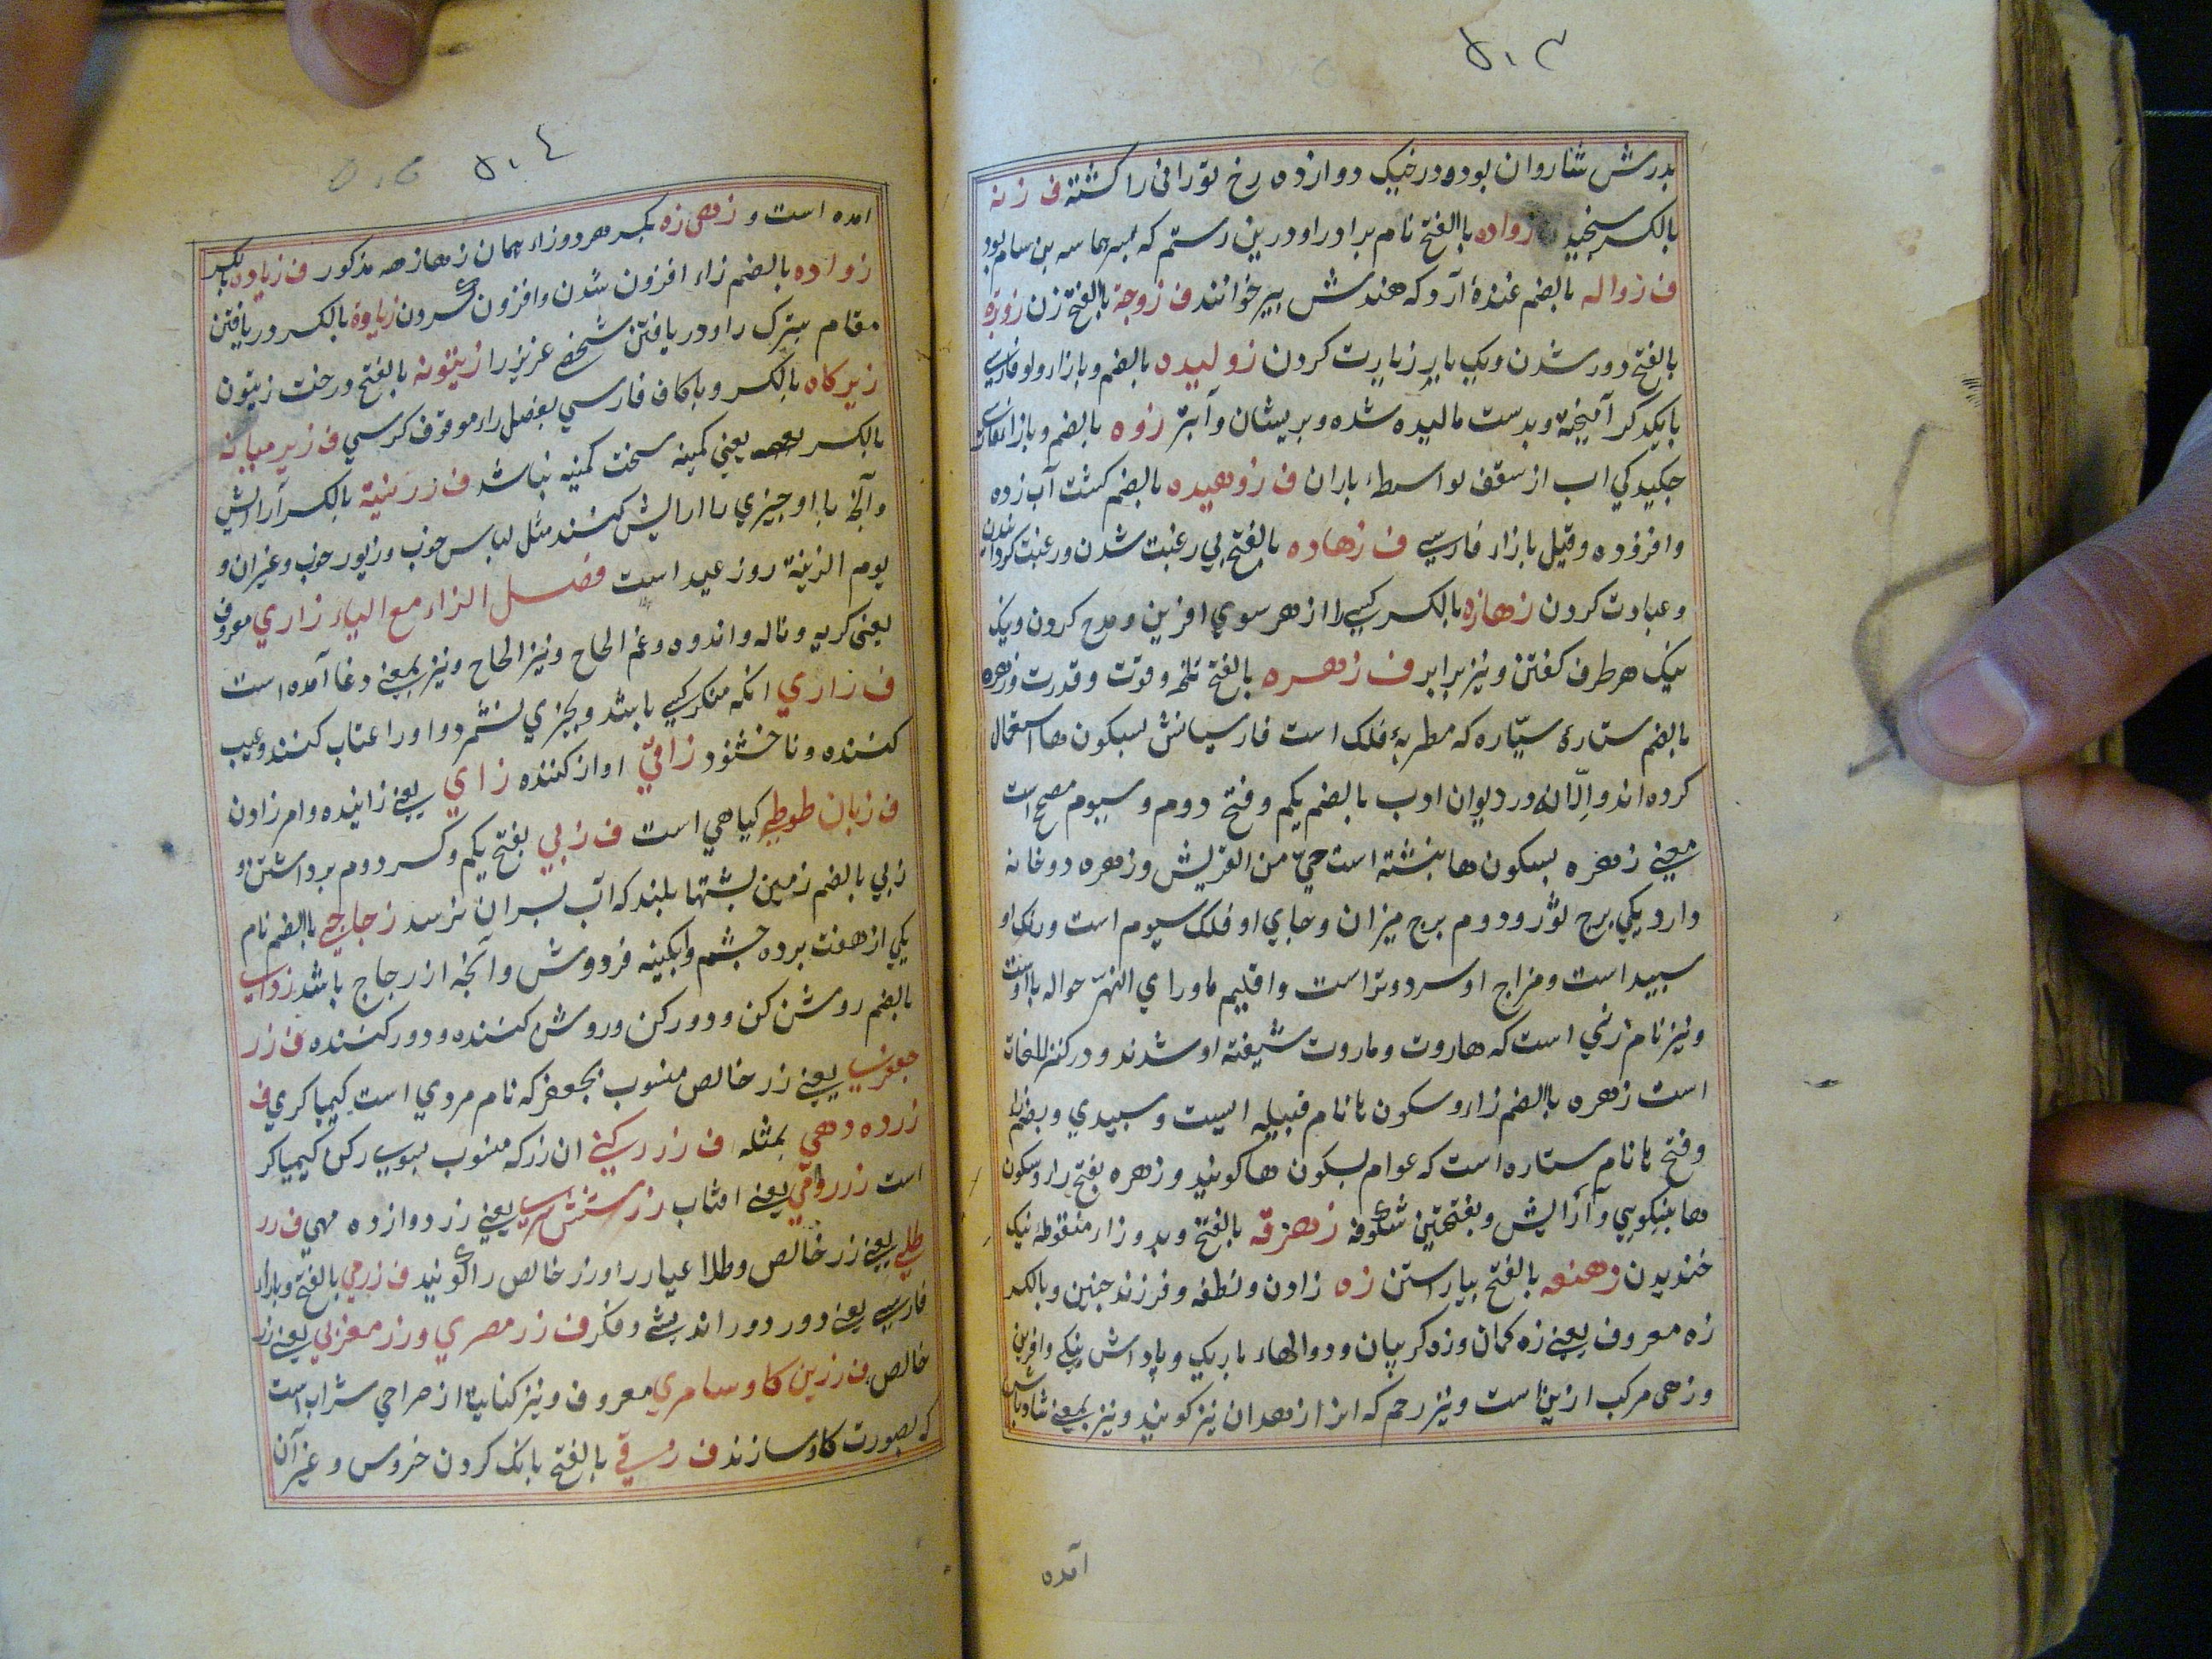 ۵۰۳
بدرش شاروان بوده در خیک دوازده رخ تورانی را کشته ف زنه
بالکسر سنجید زواده باالفتح نام برادر او درین رستم که بسرهاسه بن سام بود
ف زواله بالضم غندهٔ آرد که هندش بیر خوانند ف زوجة باالفتح زن زوره
بالفتح دور شدن و یک بار زیارت کردن زولیده بالضم و بازاء و لو فارسی
بایکدکر آمیخته و بدست مالیده شده و بریشان و آبتر زوه بالضم و بازا
جکیدکی اب از سقف بواسطه باران ف زوهیده بالضم کشت آب زده
وافزوده وقیل بازاء فارسی ف زهاده بالفتح بی رغبت شدن و رغبت کردانیدن
وعبادت کردن زهازه بالکسر کسی را از هر سوی افرین و مدح کردن و نیک
نیک هر طرف کفتن و نیز برابر ف زهره بالفتح تلخه و قوت و قدرت و زهره
بالضم ستارهٔ سیّاره که مطربهٔ فلک است فارسیانش بسکون ها استعمال
کرده اند و اِلّا در دیوان ادب بالضم یکم و فتح دوم و سیوم مصح است
معنی زهره بسکون ها بنشته است حیّ من القریش و زهره دو خانه
دارد یکی برج ثور و دوم برج میزان و جای او فلک سیوم است و رنک او
سبید است و مزاج او سرد و تر است و اقلیم ماورای النهر حواله با اوست
و نیز نام زنی است که هاروت و ماروت شیفته او شدند و در کنز اللغات
است زهره باالضم زاء و سکون ها نام قبیله ایست و سبیدی و بضم زا
و فتح ها نام ستاره است که عوام بسکون ها کویند و زهره بفتح زاء و سکون
ها نیکویی و آرایش و بفتحتین شکوفه زهزقه بالفتح و بدو زاء منقوطه نیک
خندیدن زهنعه بالفتح بیاراستن زه زادن و نطفه و فرزند جنین و بالکسر
زه معروف یعنی زه کمان و زه کریبان و دوالهاء باریک و پاداش نیکی و افرین
و زهی مرکب ازین است و نیز رحم که انرا زهدان نیز کویند و نیز بمعنی شاد باش
آمده
۵۰۴ ۵۰۵
امده است و زهی زه بکسر هر دو زاء همان زهازه مذکور ف زیاده بالکسر
زواده بالضم زاء افزون شدن و افزون کردن زیاوة بالکسر دریافتن
مقام بترک را و دریافتن شخصی عزیز را زیتونه بالفتح درخت زیتون
زیرکاه بالکسر و باکاف فارسی بفصل راء موقوف کرسی ف زیر میانه
بالکسر یعنی کمینه سخت کمینه نباشد ف زرینة بالکسر آرایش
و آنچه بااو چیزی را ارایش کنند مثل لباس خوب و زیور خوب و غیران و
یوم الزینة روز عید است فصل الزاء مع الیاء زاری معروف
یعنی کریه و ناله و اندوه و غم الحاح و نیز الحاح و نیز بمعنی دغا آمده است
ف زاری انکه منکر کسی باشد و بچیزی نشمرد و اورا عتاب کنند و عیب
کننده و ناخشنود زاقیّ اواز کننده زای یعنی زاینده و امر زاون
ف زبان طوطی کیاهی است ف زبی بفتح یکم و کسر دوم برداشتن و
زبی بالضم زمین بشتها بلند که اب بسران نرسد زجاجی باالضم نام
یکی از هفت برده چشم و ابکینه فروش و آنچه از زجاج باشد زدای
بالضم روشن کن و دور کن و روش کننده و دور کننده ف زر
جعفری یعنی زر خالص منسوب بجعفر که نام مردی است کیمیا کری ف
زرده دهی بمثله ف زر رکنی ان زر که منسوب بسوی رکن کیمیا کر
است زرر واقی یعنی افتاب زر ستشری یعنی زر دوازده مهی ف زر
طلی یعنی زر خالص و طلا عیار را و زر خالص را کویند ف زرمی بالفتح و بازاء
فارسی یعنی دور دور اندیشی و فکر ف زر مصری و زر مغربی یعنی زر
خالص ف زرین کاو سامری معروف و نیز کنایة از صراحی شراب است
که بصورت کاو سازند ف زسقی بالفتح بانک کردن خروس و غیر آن